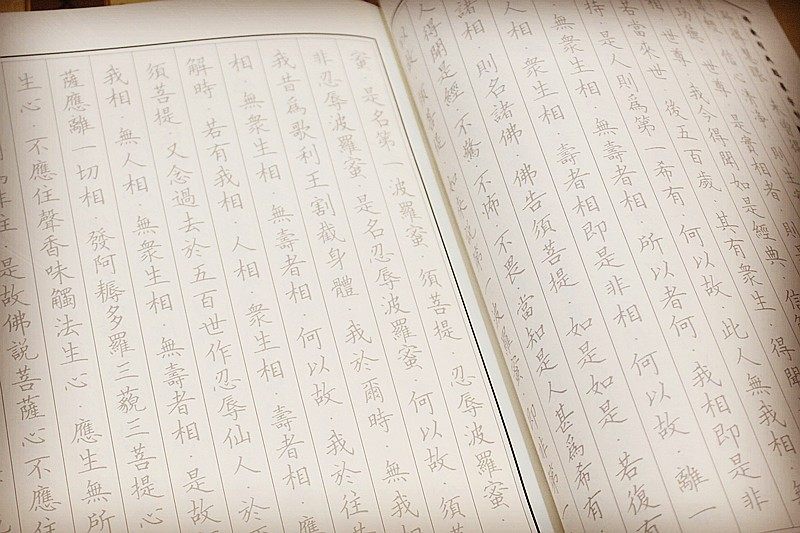 世尊．是實相者．則
世尊．我今得聞如是經典．信
若當來世．後五百歲．其有衆生．得聞
持．是人則為第一希有．何以故．此人無我相．
無衆生相．無壽者相．所以者何．我相即是非
人相．衆生相．壽者相即是非相．何以故．離一
諸相．則名諸佛．佛告須菩提．如是如是．若復有
人得聞是經．不驚．不怖．不畏．當知是人甚為希有
蜜．是名第一波羅蜜．須菩提．忍辱波羅蜜．
非忍辱波羅蜜．是名忍辱波羅蜜．何以故．須
我昔為歌利王割截身體．我於爾時．無我
相．無衆生相．無壽者相．何以故．我於往
解時．若有我相．人相．衆生相．壽者相．應
須菩提．又念過去於五百世作忍辱仙人．於
我相．無人相．無衆生相．無壽者相．是故
薩應離一切相．發阿耨多羅三藐三菩提心
生心．不應住聲香味觸法生心．應生無所
住．是故佛說菩薩心不應住